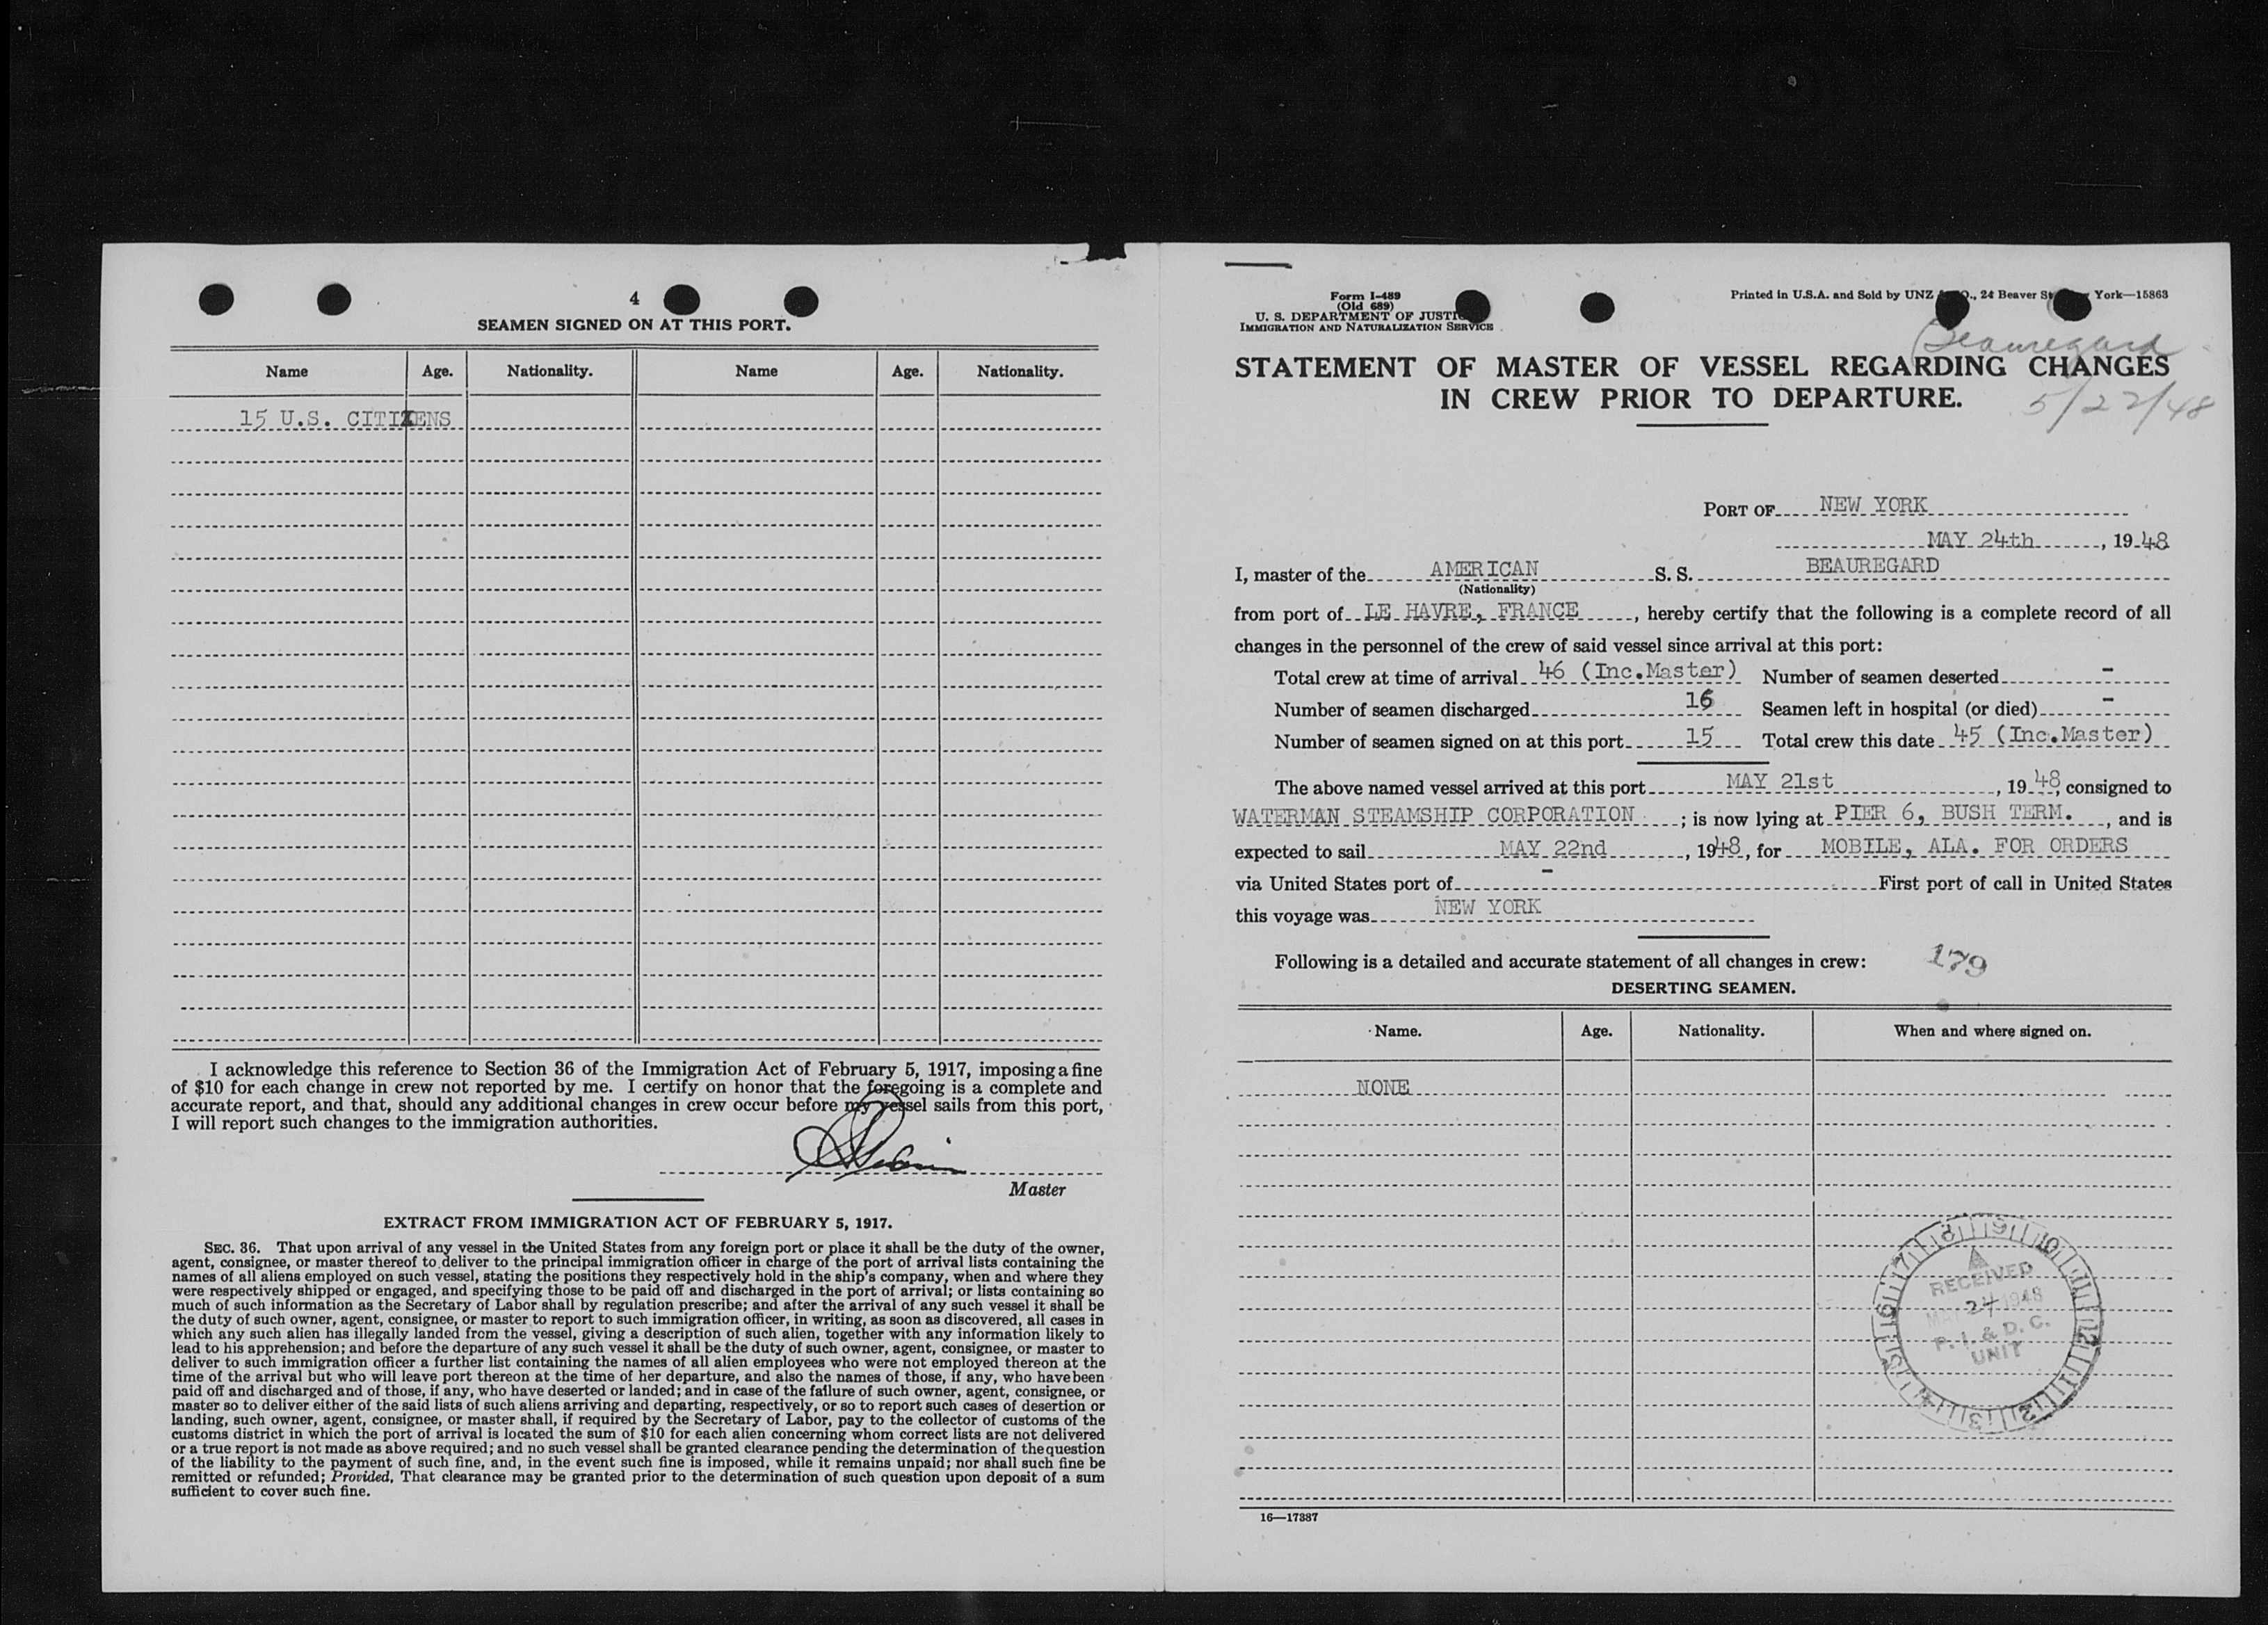 4
SEAMEN SIGNED ON AT THIS PORT.
Name Age. Nationality. Name Age. Nationality.
15 U.S. CITIZENS
I acknowledge this reference to Section 36 of the Immigration Act of February 5, 1917, imposing a fine
of $10 for each change in crew not reported by me. I certify on honor that the foregoing is a complete and
accurate report, and that, should any additional changes in crew occur before my vessel sails from this port,
I will report such changes to the immigration authorities.
Master
EXTRACT FROM IMMIGRATION ACT OF FEBRUARY 5, 1917.
SEC. 36. That upon arrival of any vessel in the United States from any foreign port or place it shall be the duty of the owner,
agent, consignee, or master thereof to deliver to the principal immigration officer in charge of the port of arrival lists containing the
names of all aliens employed on such vessel, stating the positions they respectively hold in the ship's company, when and where they
were respectively shipped or engaged, and specifying those to be paid off and discharged in the port of arrival; or lists containing so
much of such information as the Secretary of Labor shall by regulation prescribe; and after the arrival of any such vessel it shall be
the duty of such owner, agent, consignee, or master to report to such immigration officer, in writing, as soon as discovered, all cases in
which any such alien has illegally landed from the vessel, giving a description of such alien, together with any information likely to
lead to his apprehension; and before the departure of any such vessel it shall be the duty of such owner, agent, consignee, or master to
deliver to such immigration officer a further list containing the names of all alien employees who were not employed thereon at the
time of the arrival but who will leave port thereon at the time of her departure, and also the names of those, if any, who have been
paid off and discharged and of those, if any, who have deserted or landed; and in case of the failure of such owner, agent, consignee, or
master so to deliver either of the said lists of such aliens arriving and departing, respectively, or so to report such cases of desertion or
landing, such owner, agent, consignee, or master shall, if required by the Secretary of Labor, pay to the collector of customs of the
customs district in which the port of arrival is located the sum of $10 for each alien concerning whom correct lists are not delivered
or a true report is not made as above required; and no such vessel shall be granted clearance pending the determination of the question
of the liability to the payment of such fine, and, in the event such fine is imposed, while it remains unpaid; nor shall such fine be
remitted or refunded; Provided, That clearance may be granted prior to the determination of such question upon deposit of a sum
sufficient to cover such fine.
Form I-489
(Old 689)
U. S. DEPARTMENT OF JUSTI
IMMIGRATION AND NATURALIZATION SERVICE
Printed in U.S.A. and Sold by UNZ O., 24 Beaver St York—15863
Beauregard
STATEMENT OF MASTER OF VESSEL REGARDING CHANGES
IN CREW PRIOR TO DEPARTURE.
5/22/48
PORT OF NEW YORK
MAY 24th, 1948
I, master of the AMERICAN S. S. BEAUREGARD
(Nationality)
from port of LE HAVRE, FRANCE, hereby certify that the following is a complete record of all
changes in the personnel of the crew of said vessel since arrival at this port:
Total crew at time of arrival 46 (Inc.Master) Number of seamen deserted -
Number of seamen discharged 16 Seamen left in hospital (or died) -
Number of seamen signed on at this port 15 Total crew this date 45 (Inc.Master)
The above named vessel arrived at this port MAY 21st, 1948, consigned to
WATERMAN STEAMSHIP CORPORATION; is now lying at PIER 6, BUSH TERM., and is
expected to sail MAY 22nd, 1948, for MOBILE, ALA. FOR ORDERS
via United States port of - First port of call in United States
this voyage was NEW YORK
Following is a detailed and accurate statement of all changes in crew: 179
DESERTING SEAMEN.
Name. Age. Nationality. When and where signed on.
NONE
8 9 10 11 12 1 2 3 4 5 6 7
RECEIVED
MAY 24 1948
P. I. & D. C.
UNIT
16—17387